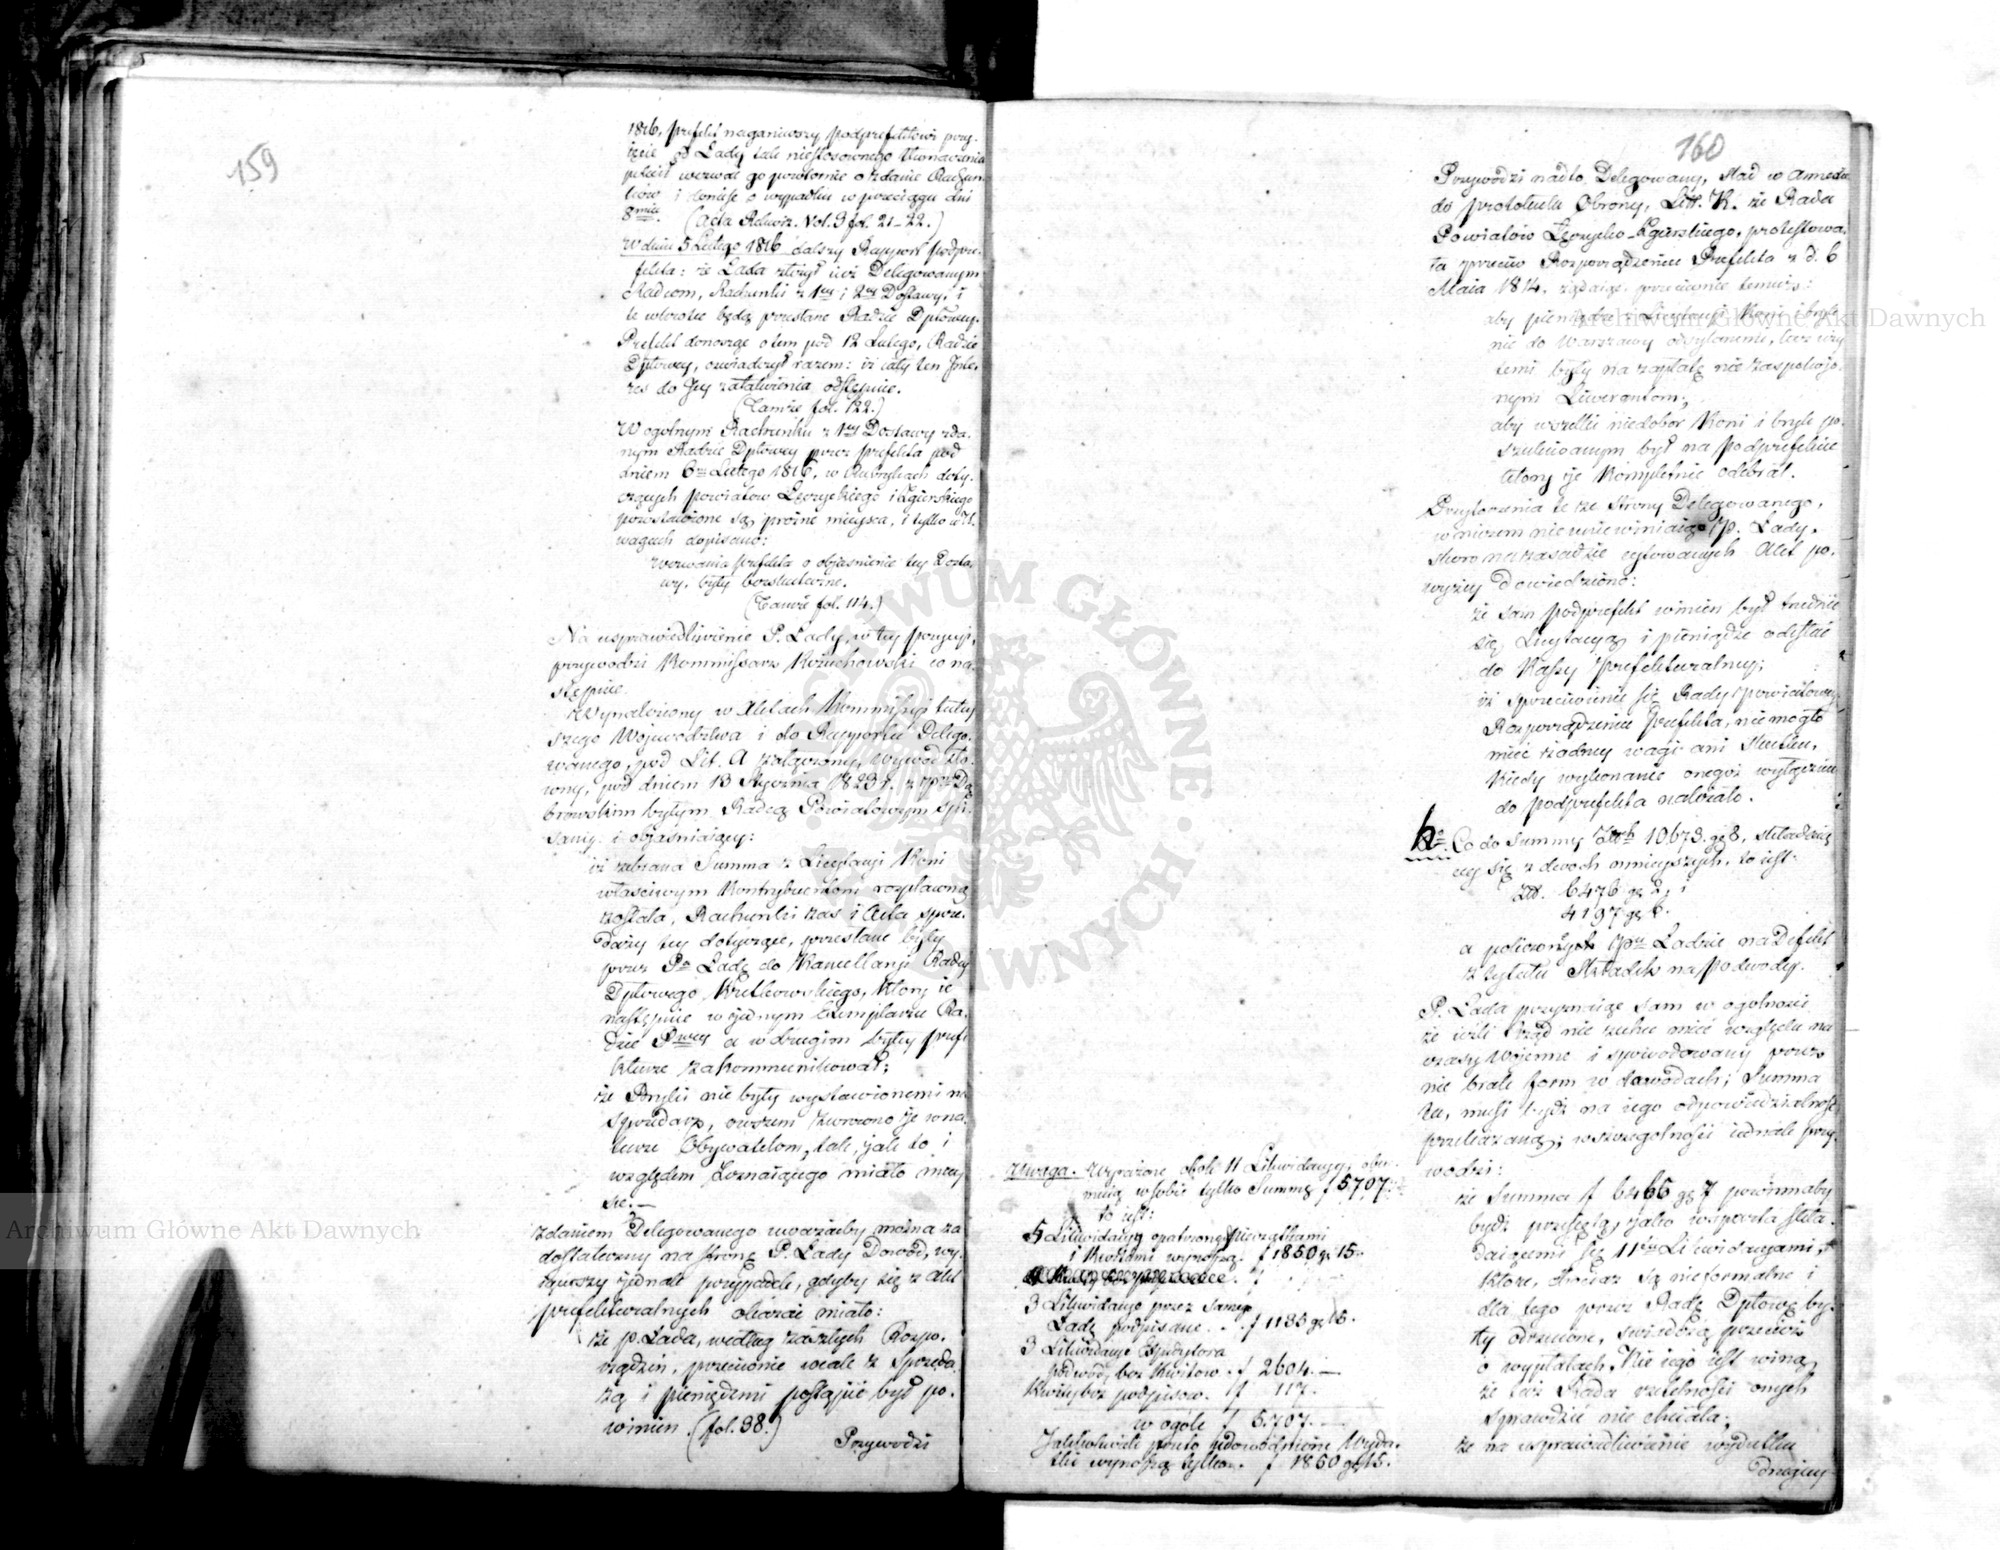 159
1816, Prefekt naganiwszy Podprefektowi przy-
ięcie od Łady tak niestosownego tłomaczenia
polecił wezwać go powtornie o zdanie Rachun-
ków i donieść o wypadku w przeciągu dni
8miu. (Acta Rekwiz. Vol. 3 fol. 21-22.)
W dniu 5 Lutego 1816 dalszy Rapport Podpre-
fekta: że Łada złożył iuż Delegowanym
Radcom, Rachunki z 1ey i 2ey Dostawy, i
te wkrotce będą przesłane Radzie Dptowey.
Prefekt donosząc o tem pod 12 Lutego, Radzie
Dptowey, oswiadczył razem: iż cały ten Inte-
res do Jey załatwienia odstępuie.
(Tamże fol. 122.)
W ogolnym Rachunku z 1ey Dostawy zda-
nym Radzie Dptowey przez Prefekta pod
dniem 6m Lutego 1816, w Rubrykach doty-
czących powiatow Łęczyckiego i Zgierskiego
pozostawione są prożne mieysca, i tylko w U-
wagach dopisano:
wezwania Prefekta o obiasnienie tey Dosta-
wy, były bezskuteczne.
(Tamże fol. 114.)
Na usprawiedliwienie P. Łady, w tey pozycyi,
przywodzi Kommissarz Kożuchowski co na-
stępuie.
Wynaleziony w Aktach Kommissyi tutey-
szego Woiewodztwa i do Rapportu Delego-
wanego, pod Lit. A załączony, Wywod sło-
wny, pod dniem 13 Stycznia 1823 r. z Pm Dą-
browskim byłym Radcą Powiatowym spi-
sany i obiasniaiący:
iż zebrana Summa z Licytacyi Koni
własciwym Kontrybuentom rozpłaconą
została, Rachunki zas i Acta sprze-
daży tey dotyczące, przesłane były
przez Pa Ładę do Kancellaryi Radcy
Dptowego Kretkowskiego, ktory ie
następnie w iednym Exemplarzu Ra-
dzie Dwey a w drugim byłey Prefe-
kturze zakommunikował;
że Bryki nie były wystawionemi na
sprzedarz, owszem zwrocono ie w na-
turze Obywatelom, tak, iak to i
względem Poznaiącego miało miey-
sce.—
Zdaniem Delegowanego uważaby można za
dostateczny na stronę P. Łady Dowod, wy-
iąwszy iednak przypadek, gdyby się z Akt
prefekturalnych okazać miało:
że P. Łada, według zaszłych Rozpo-
rządzeń, przeciwnie wcale z Sprzeda-
żą i pieniędzmi postąpić był po-
winien. (fol. 38.)
Przywodzi
160
Przywodzi nadto Delegowany, slad w Annexie
do protokułu Obrony, Litt. K. że Rada
Powiatów Łęczycko-Zgierskiego, protestowa-
ła przeciw Rozporządzeniu Prefekta z d. 6
Maia 1814. żądaiąc przeciwnie temuż:
aby pieniądze z Licytacyi Koni i bryk
nie do Warszawy odsyłanemi, lecz uży-
temi były na zapłatę nie zaspokoio-
nym Liwerantom;
aby wszelki niedobor Koni i bryk po-
szukiwanym był na Podprefekcie
ktory ie Kompletnie odebrał.
Przytoczenia te ze strony Delegowanego,
w niczem nie uniewinniaią P. Łady,
skoro na zasadzie cytowanych Akt po-
wyżey dowiedziono:
że sam Podprefekt winien był trudnić
się Licytacyą i pieniądze odesłać
do Kassy Prefekturalney;
iż sprzeciwienie się Rady Powiatowey
Rozporządzeniu Prefekta, nie mogło
mieć żadney wagi ani skutku,
Kiedy wykonanie onegoż wyłącznie
do Podprefekta należało.
Co do Summy Złth 10673. gr 8, składaią-
cey się z dwoch mnieyszych, to iest:
Złł. 6476 gr 2, i
4197 gr 6.
a policzonych Pnu Ładzie na Defekt
z tytułu Składek na Podwody.
P. Łada przyznaiąc sam w ogolnosci
że ieżli Rząd nie zechce mieć względu na
czasy Woienne i spowodowany przez
nie brak form w dowodach; Summa
ta, musi bydź na iego odpowiedzialnosć
przekazaną; w szczegolnosci iednak przy-
wodzi:
że Summa f 6466 gr 7 powinnaby
bydź przyiętą, iako wsparta skła-
daiącemi się 11tu Likwidacyami,
Które, chociaż są nieformalne i
dla tego przez Radę Dptową by-
ły odrzucone, swiadczą przecież
o wypłatach. Nie iego iest winą,
że też Rada rzetelnosci onych
sprawdzić nie chciała.
że na usprawiedliwienie wydatku
drugiey
Uwaga. Wyrażone obok 11 Likwidacyi, obey-
muią w sobie tylko Summę f 5707.
to iest:
5 Likwidacyi opatrzone
i Kwitami wynoszą. f 1850 gr 15.
3 Likwidacye przez samego
Ładę podpisane. . . f 1135 gr 15.
3 Likwidacye Expedytora
podwod, bez Kwitow. f 2604.—
Kwity bez podpisow. f 117.
w ogóle f 5.707.—
Jakkolwiek przeto udowodnione Wyda-
tki wynoszą tylko. f 1850 gr 15.
Archiwum Główne Akt Dawnych
Archiwum Główne Akt Dawnych
ARCHIWUM GŁÓWNE AKT DAWNYCH